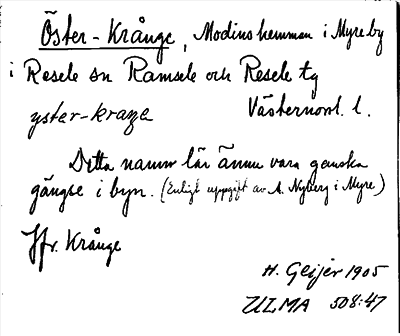 Öster-Krånge, Modins hemman i Myre by
i Resele sn Ramsele och Resele tg
yster-kraŋe Västernorrl. l.
Detta namn lär ännu vara ganska
gängse i byn. (Enligt uppgift av A. Nyberg i Myre)
Jfr. Krånge
H. Geijer 1905
ULMA 508:47